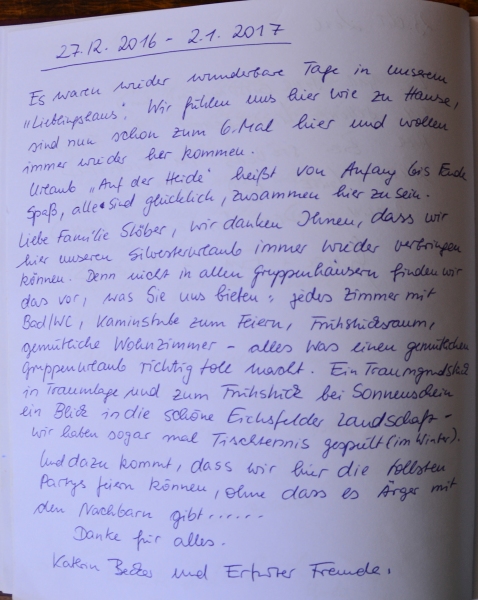 27.12. 2016 - 2.1. 2017
Es waren wieder wunderbare Tage in unserem
„Lieblingshaus". Wir fühlen uns hier wie zu Hause,
sind nun schon zum 6. Mal hier und wollen
immer wieder her kommen.
Urlaub „Auf der Heide" heißt von Anfang bis Ende
Spaß, alle sind glücklich, zusammen hier zu sein.
Liebe Familie Stöber, wir danken Ihnen, dass wir
hier unseren Silvesterurlaub immer wieder verbringen
können. Denn nicht in allen Gruppenhäusern finden wir
das vor, was Sie uns bieten: jedes Zimmer mit
Bad/WC, Kaminstube zum Feiern, Frühstücksraum,
gemütliche Wohnzimmer - alles was einen gemütlichen
Gruppenurlaub richtig toll macht. Ein Traumgrundstück
in Traumlage und zum Frühstück bei Sonnenschein
ein Blick in die schöne Eichsfelder Landschaft -
wir haben sogar mal Tischtennis gespielt (im Winter).
Und dazu kommt, dass wir hier die tollsten
Partys feiern können, ohne dass es Ärger mit
den Nachbarn gibt......
Danke für alles.
Katrin Becker und Erfurter Freunde.